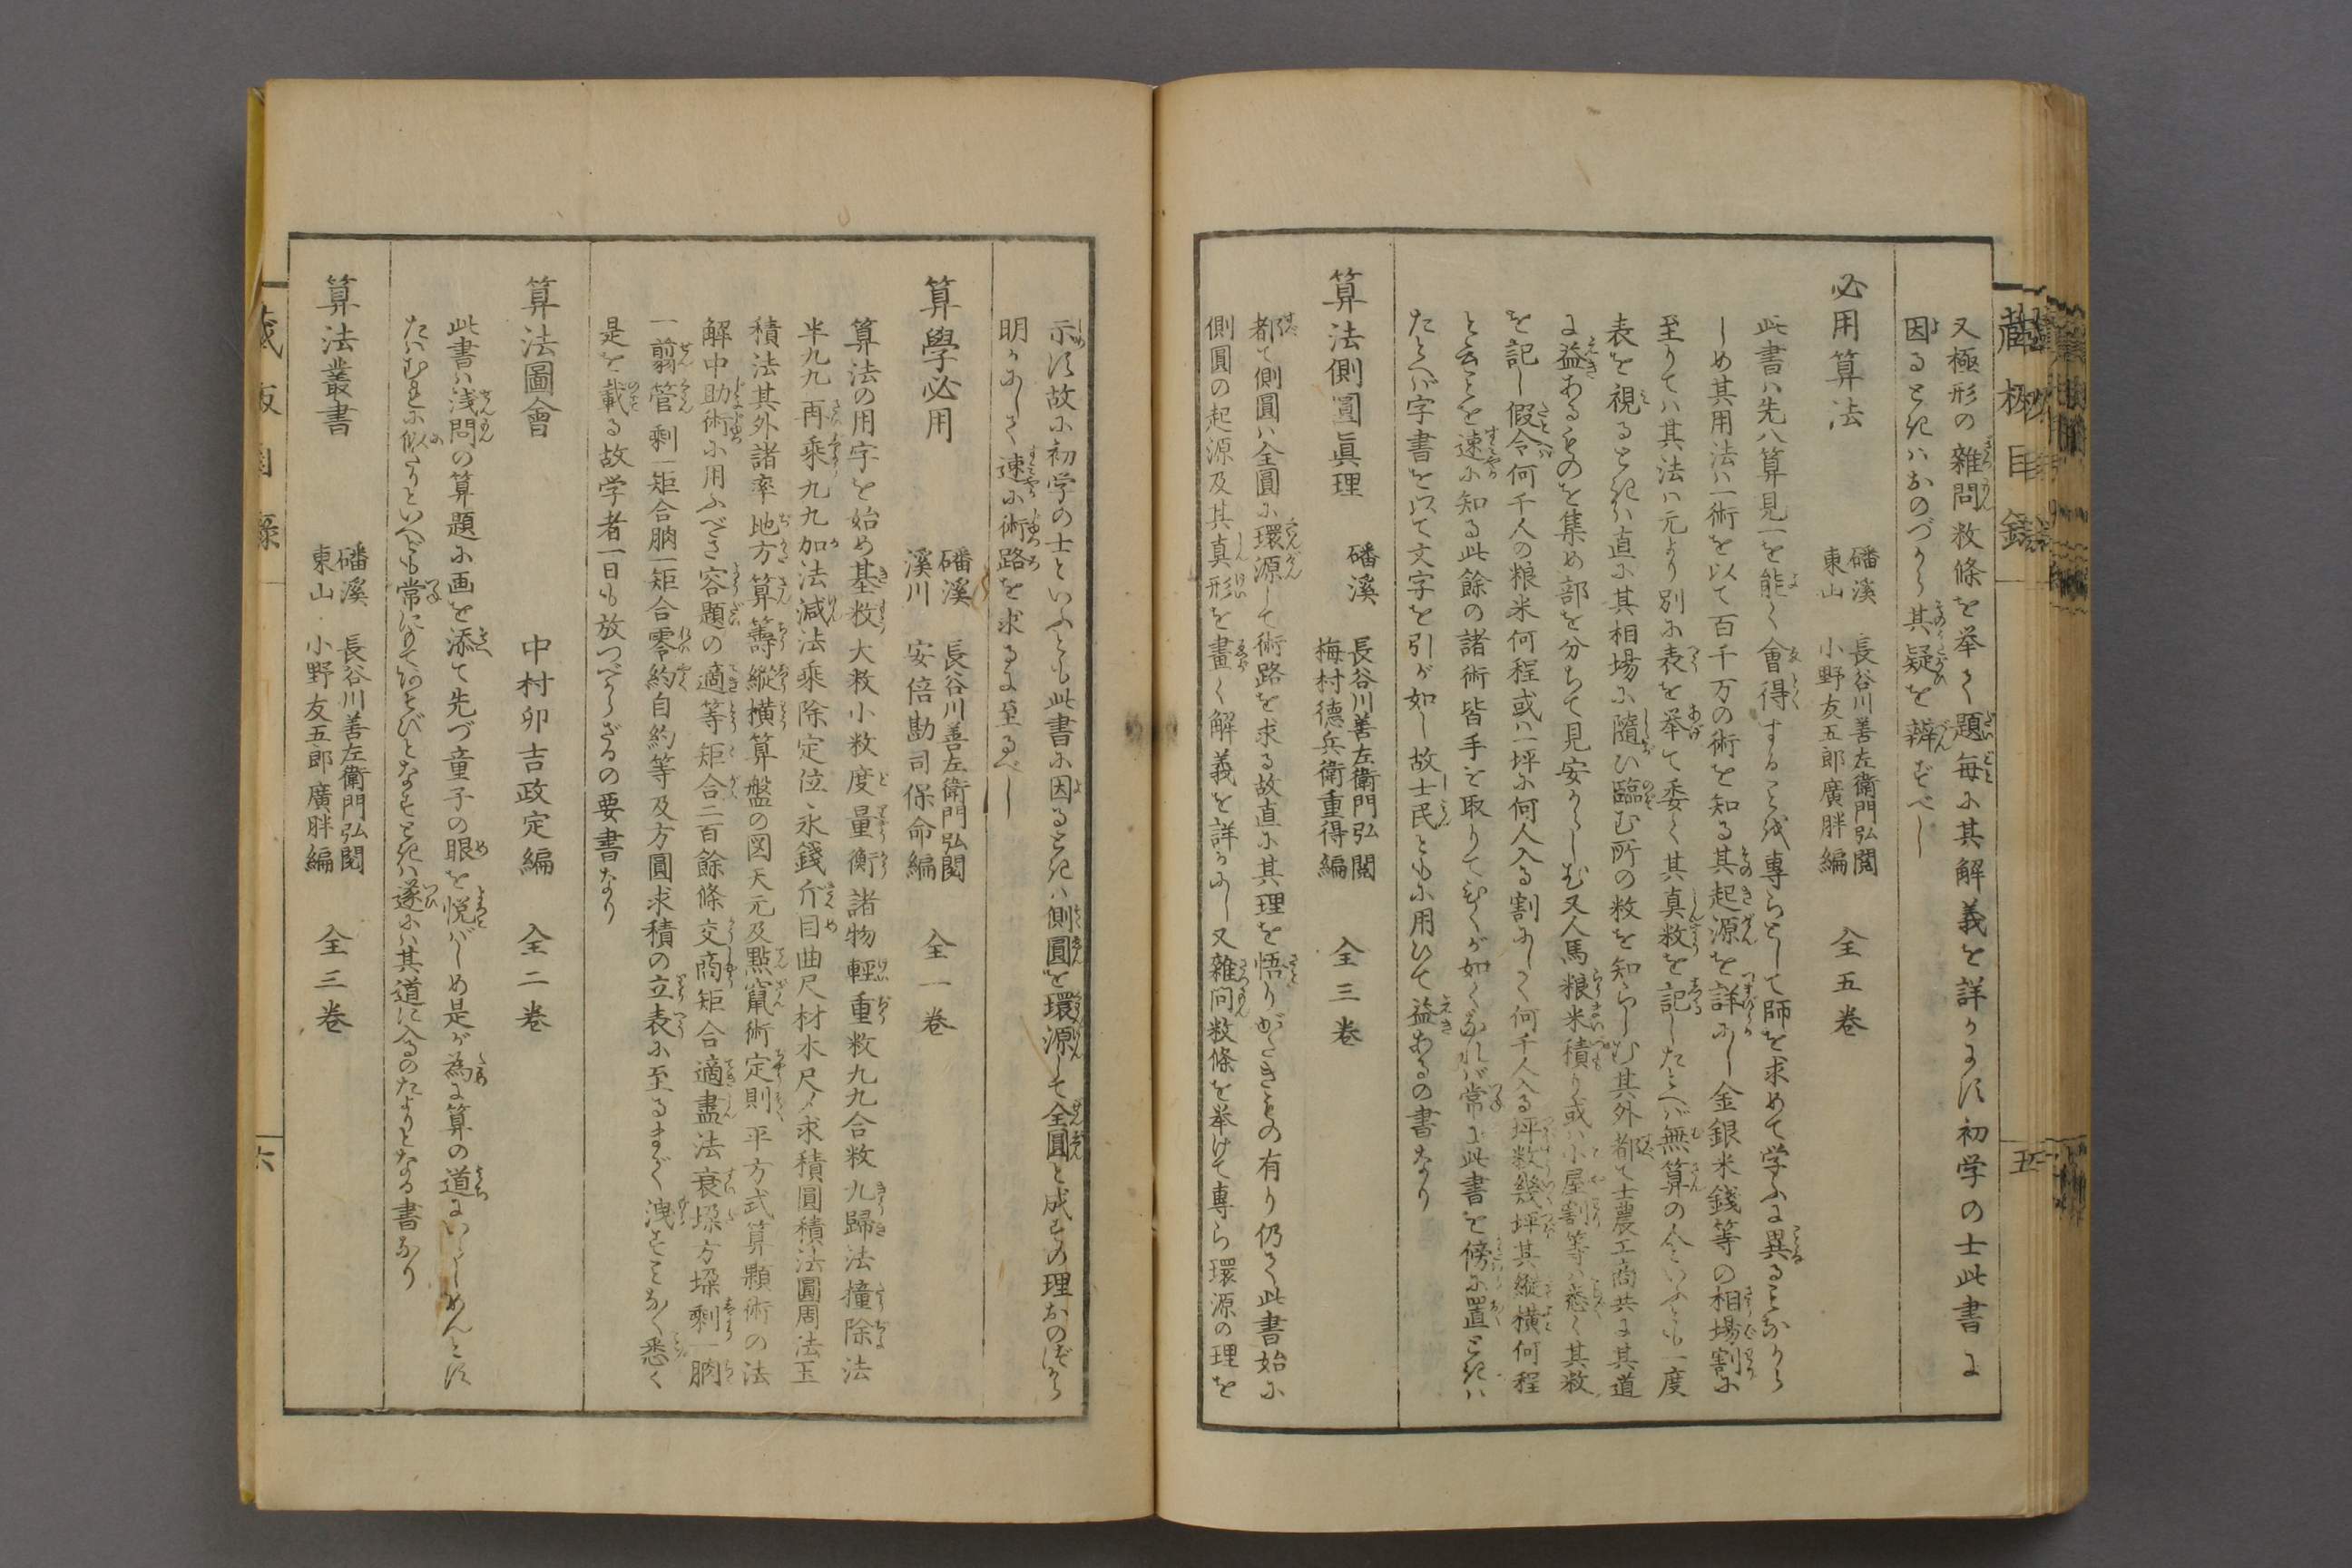 又極形の雑問数條を挙て題毎に其解義を詳かにす初学の士此書に
因るときハおのづから其疑を辨ずべし
必用算法
磻溪 長谷川善左衛門弘閲
東山 小野友五郎廣胖編
全五巻
此書ハ先八算見一を能く會得することを専らとして師を求めて学ふに異ることなから
しめ其用法ハ一術を以て百千万の術を知る其起源を詳にし金銀米錢等の相場割に
至りてハ其法ハ元より別に表を挙て委く其真数を記したとへバ無算の人といふとも一度
表を視るときハ直に其相場に隨ひ臨む所の数を知らしむ其外都て士農工商共に其道
に益あるものを集め部を分ちて見安からしむ又人馬粮米積り或ハ小屋割等ハ悉く其数
を記し假令何千人の粮米何程或ハ一坪に何人入る割にして何千人入る坪数幾坪其縦横何程
と云ことを速に知る此餘の諸術皆手を取りてひくが如くなれバ常に此書を傍に置ときハ
たとへバ字書を以て文字を引が如し故士民ともに用ひて益あるの書なり
算法側圓眞理
磻溪 長谷川善左衛門弘閲
梅村德兵衛重得編
全三巻
都て側圓ハ全圓に環源して術路を求る故直に其理を悟りがたきもの有り仍て此書始に
側圓の起源及其真形を畫く解義を詳かにし又雑问数條を挙げて専ら環源の理を
藏板目録
五
示す故に初学の士といふとも此書に因るときハ側圓を環源して全圓と成すの理おのずから
明かにして速に術路を求るに至るべし
算學必用
磻溪 長谷川善左衛門弘閲
溪川 安倍勘司保命編
全一巻
算法の用字を始め基数大数小数度量衡諸物輕重数九九合数九歸法撞除法
半九九再乘九九加法減法乘除定位永錢斤目曲尺材木尺〆求積圓積法圓周法玉
積法其外諸率地方算籌縦横算盤の図天元及點竄術定則平方式算顆術の法
解中助術に用ふべき容題の適等矩合二百餘條交商矩合適盡法衰垜方垜剰一朒
一翦管剰一矩合朒一矩合零約自約等及方圓求積の立表に至るまで洩すことなく悉く
是を載る故学者一日も放つべからざるの要書なり
算法圖會
中村卯吉政定編
全二巻
此書ハ浅問の算題に画を添て先づ童子の眼を悦バしめ是が為に算の道にいらしめんとす
たハむれに似たりといへども常にもてあそびとなすときハ遂にハ其道に入るのたよりとなる書なり
算法叢書
磻溪 長谷川善左衛門弘閲
東山 小野友五郎廣胖編
全三巻
藏板目録
六